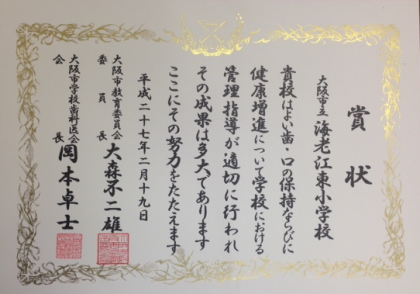 賞状
大阪市立 海老江東小学校
貴校はよい歯・口の保持ならびに
健康増進について学校における
管理指導が適切に行われ
その成果は多大であります
ここにその努力をたたえます
平成二十七年二月十九日
大阪市教育委員会
委員長 大森不二雄
大阪市学校歯科医会
会長 岡本卓士